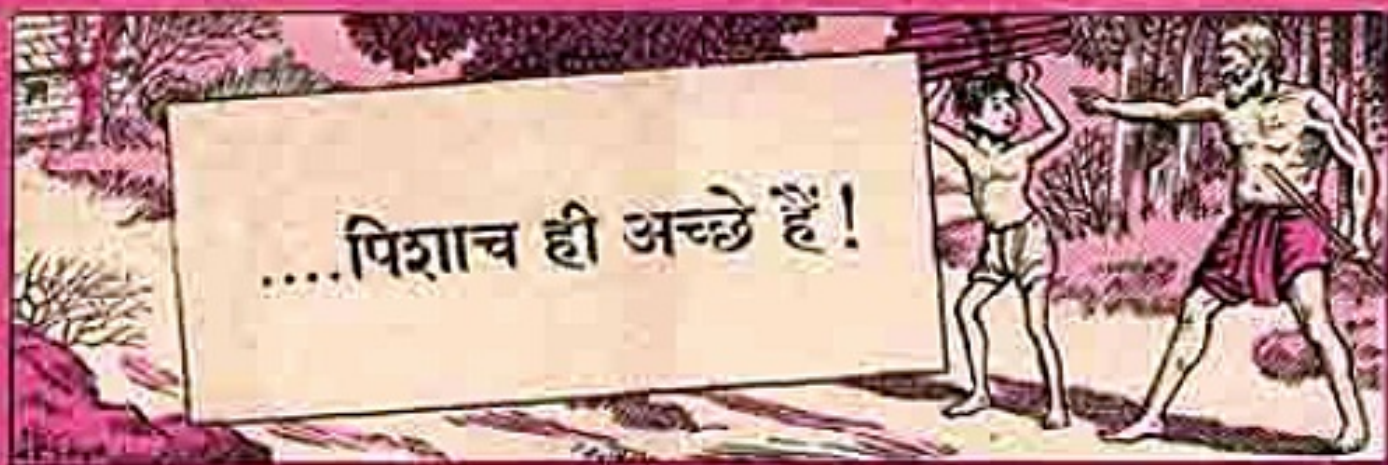 ....पिशाच ही अच्छे हैं!